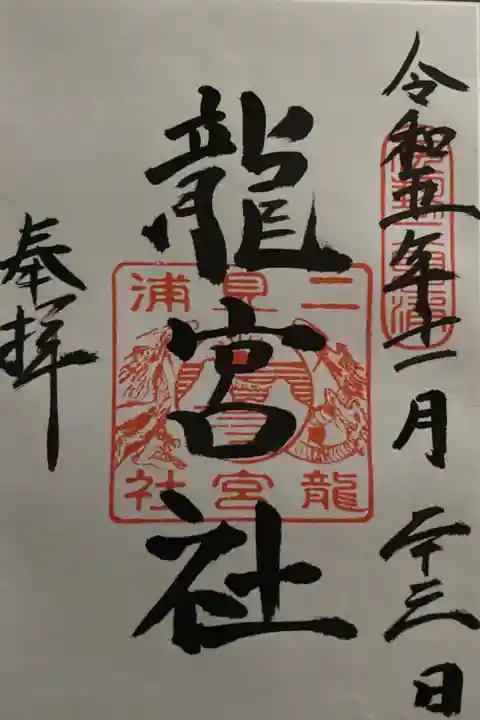 令和五年十一月二十三日
龍宮社
二見浦
龍宮社
奉拝